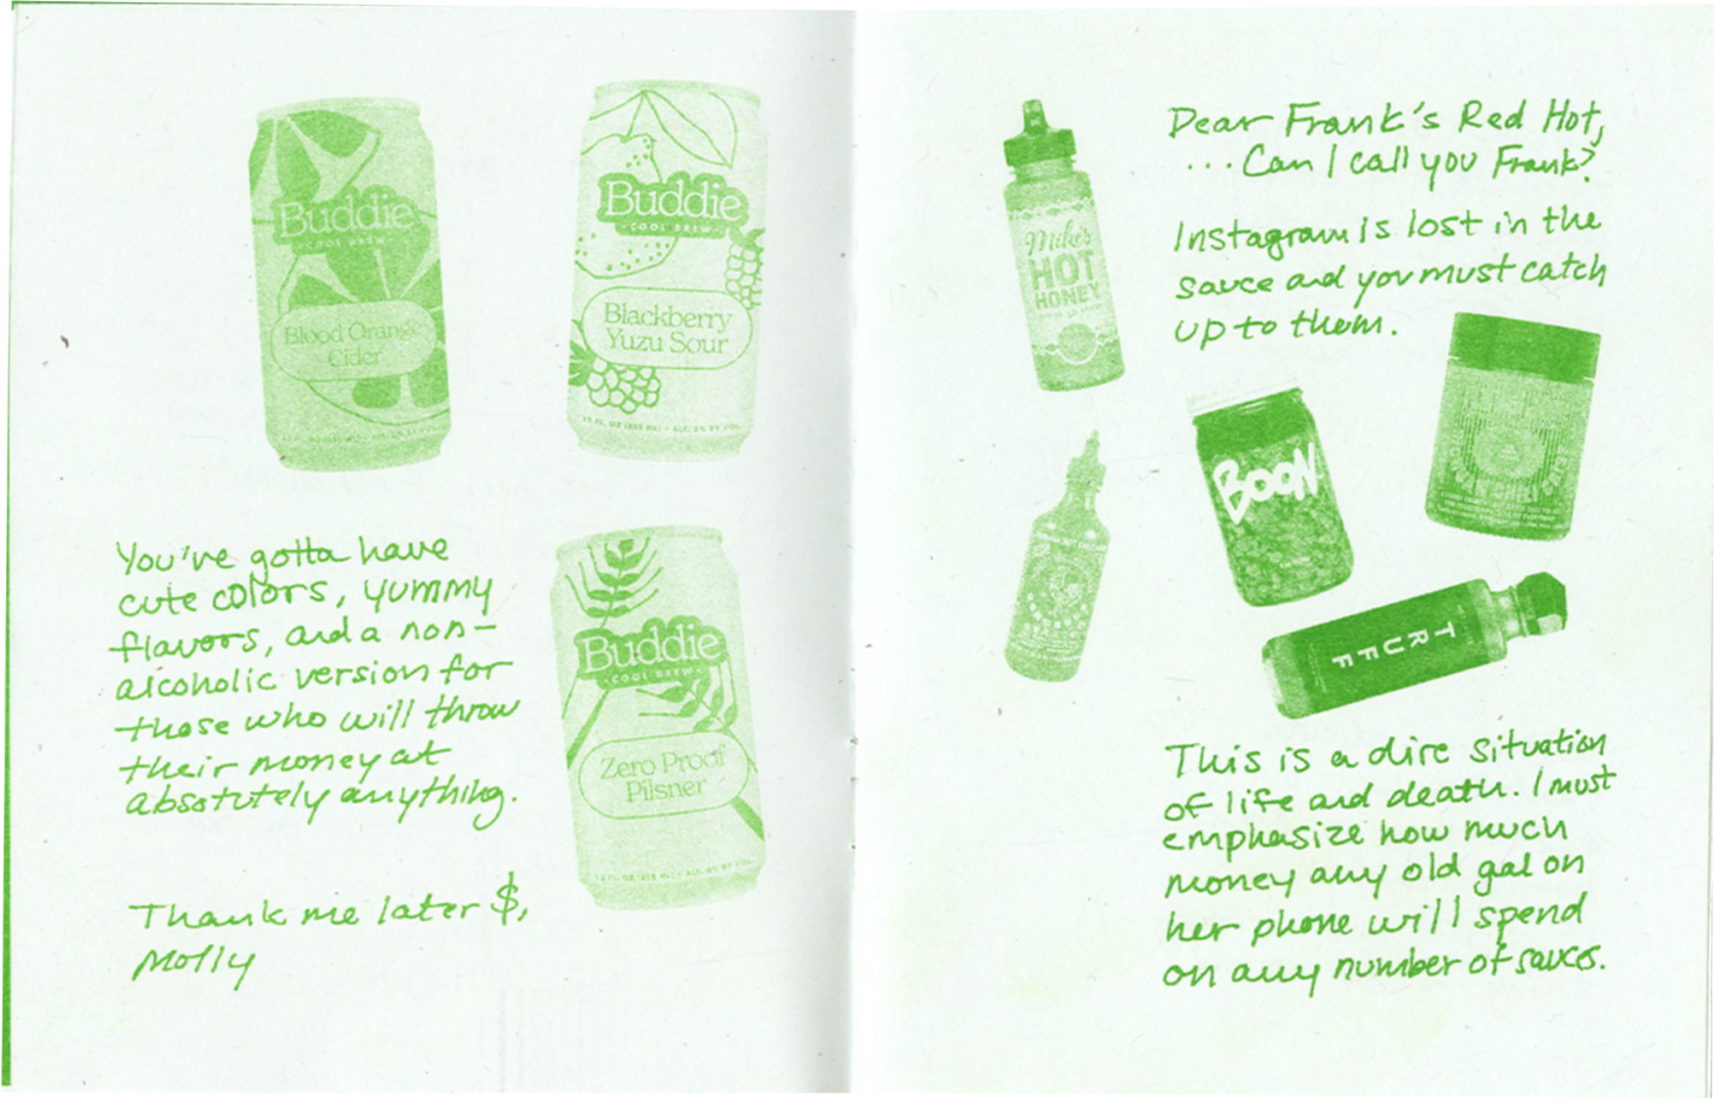 Buddie
COOL BREW
Blood Orange
Cider
Buddie
COOL BREW
Blackberry
Yuzu Sour
12 FL. OZ (355 ML) • ALC. 5% BY VOL.
You've gotta have
cute colors, yummy
flavors, and a non-
alcoholic version for
those who will throw
their money at
absolutely anything.
Buddie
COOL BREW
Zero Proof
Pilsner
Thank me later $,
Molly
Dear Frank's Red Hot,
... Can I call you Frank?
Instagram is lost in the
sauce and you must catch
up to them.
Mike's
HOT
HONEY
BOON
TRUFF
This is a dire situation
of life and death. I must
emphasize how much
money any old gal on
her phone will spend
on any number of sauces.